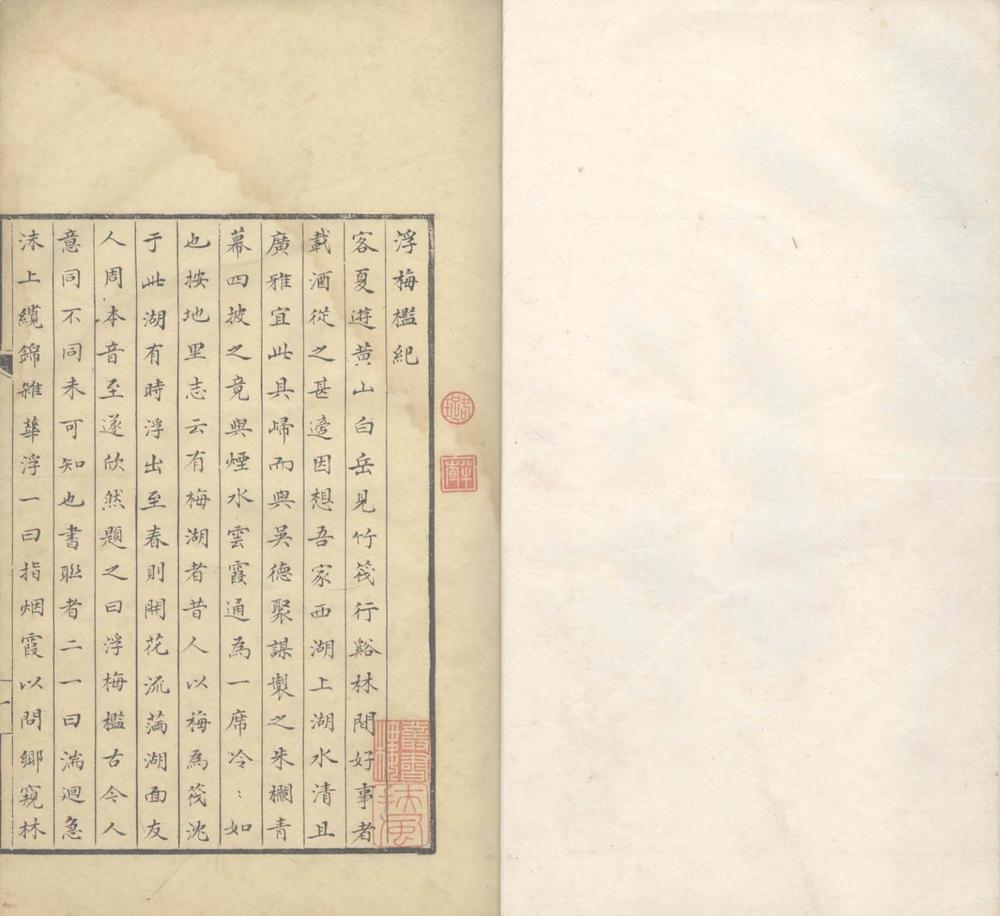 浮梅檻紀
客夏遊黃山白岳見竹筏行谿林間好事者
載酒從之甚適因想吾家西湖上湖水清且
廣雅宜此具歸而與吳德聚謀製之朱欄青
幕四披之竟與煙水雲霞通為一席泠〻如
也按地里志云有梅湖者昔人以梅為筏沈
于此湖有時浮出至春則開花流滿湖面友
人周本音至遂欣然題之曰浮梅檻古今人
意同不同未可知也書聯者二一曰湍迴急
沫上纜錦雜華浮一曰指烟霞以問鄉窺林